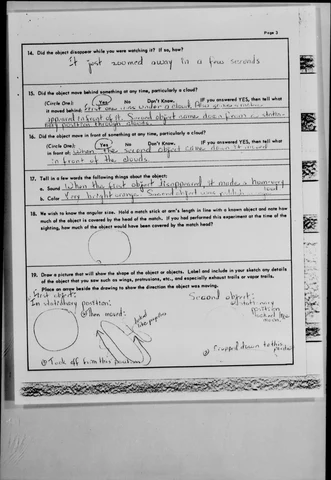 Page 3
14. Did the object disappear while you were watching it? If so, how?
It just zoomed away in a few seconds
15. Did the object move behind something at any time, particularly a cloud?
(Circle One): Yes No Don't Know. IF you answered YES, then tell what
it moved behind: First one was under a cloud,
appeared in front of it. Second object came down from a
position through clouds.
16. Did the object move in front of something at any time, particularly a cloud?
(Circle One): Yes No Don't Know. IF you answered YES, then tell what
in front of: When the second object came down it was
in front of the clouds.
17. Tell in a few words the following things about the object:
a. Sound When the first object disappeared, it made a hum-very
loud
b. Color Very bright orange. Second object was
18. We wish to know the angular size. Hold a match stick at arm's length in line with a known object and note how
much of the object is covered by the head of the match. If you had performed this experiment at the time of the
sighting, how much of the object would have been covered by the match head?
19. Draw a picture that will show the shape of the object or objects. Label and include in your sketch any details
of the object that you saw such as wings, protrusions, etc., and especially exhaust trails or vapor trails.
Place an arrow beside the drawing to show the direction the object was moving.
First object:
In stationary position:
Then moved:
looked like propellers
Took off from this position
Second object:
stationary
position
looked like
moon.
Dropped down to this